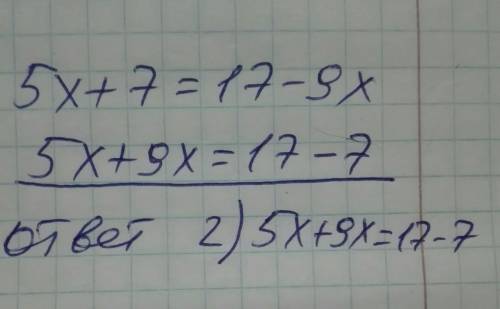 5x+7=17-9x
5x+9x=17-7
ответ 2) 5x+9x=17-7